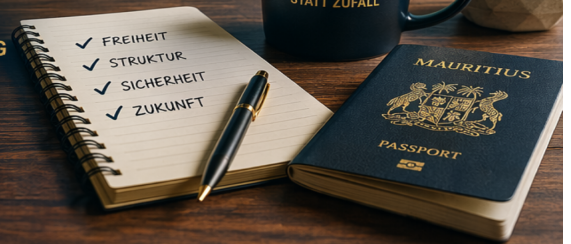 G
STATT ZUFALL
✓ FREIHEIT
✓ STRUKTUR
✓ SICHERHEIT
✓ ZUKUNFT
MAURITIUS
PASSPORT